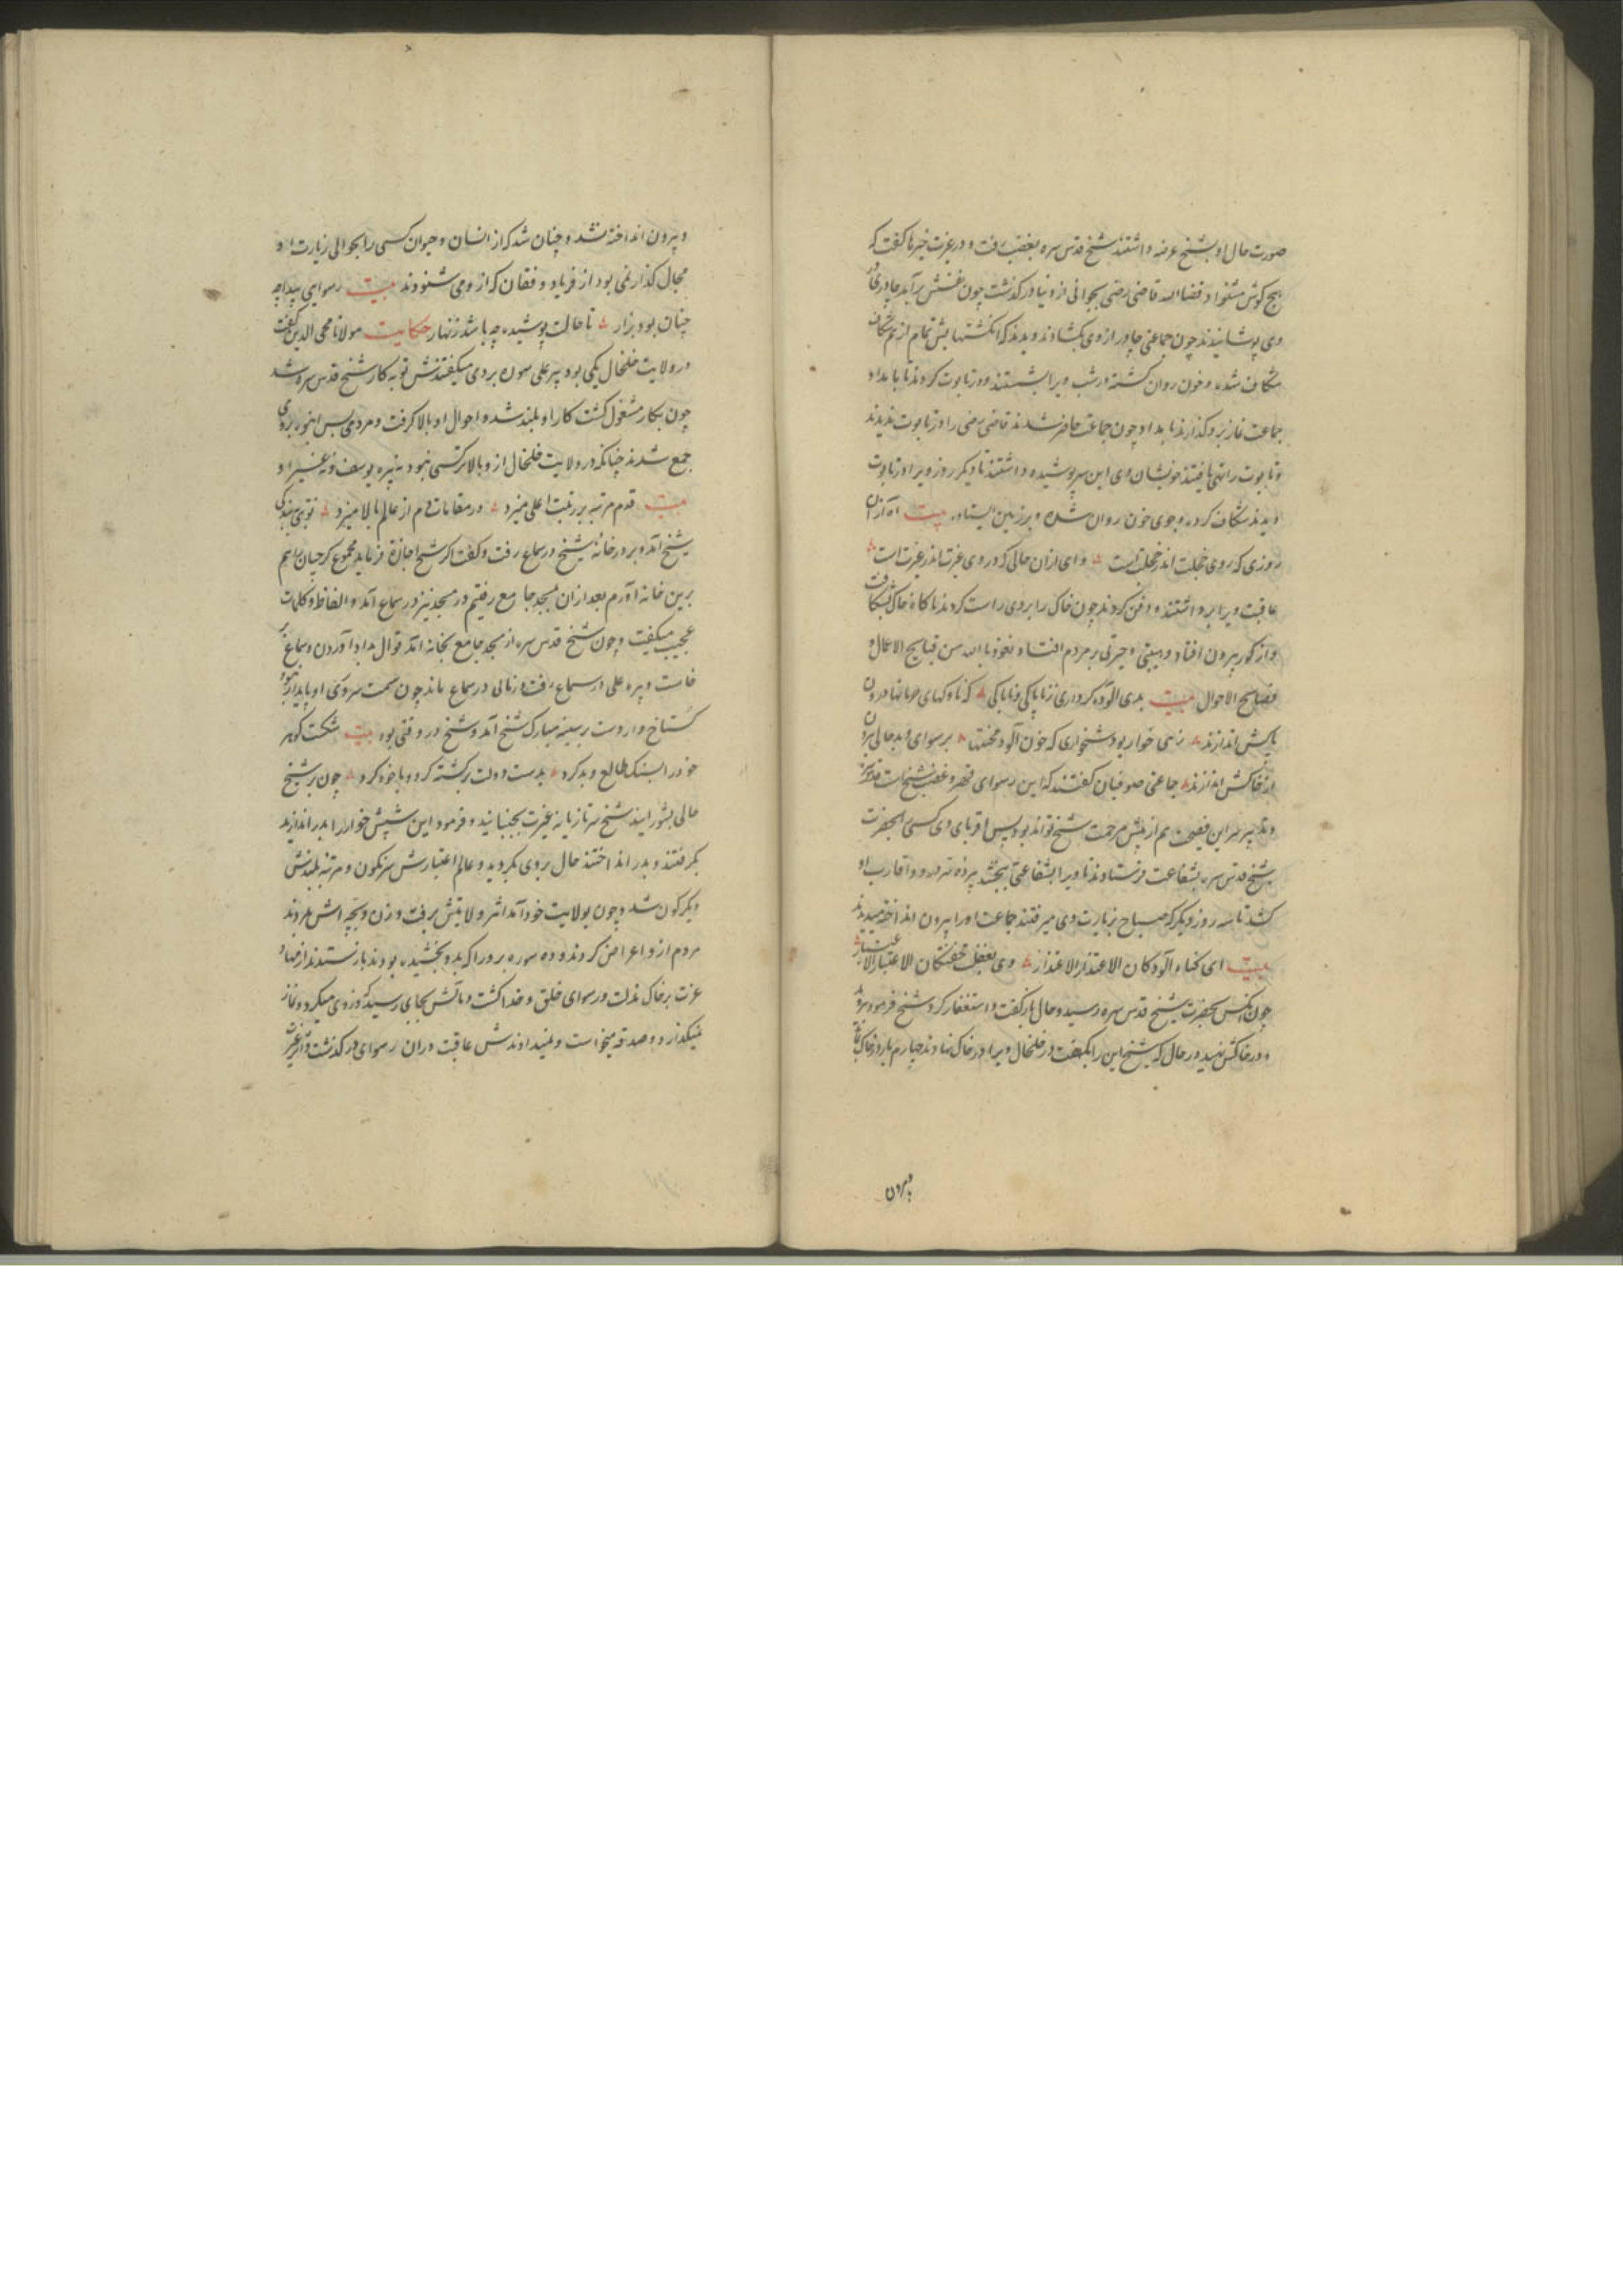 صورت حال او بشیخ عرضه داشتند شیخ قدس سره بغضب رفت و در غیرت خیرها کفت که
هیچ کوش مشنواد قضا الله قاضی رضی بجوانی از دنیا درکذشت چون غسلش برآمد چادری در
وی پوشانیدند چون جماعتی چادر از وی بکشادند دیدند که انکشتهایش تمام از هم شکاف
شکاف شده و خون روان کشته در شب ویرا بشستند و در تابوت کردند تا بامداد
جماعت نماز برو کذارند بامداد چون جماعت حاضر شدند قاضی رضی را در تابوت ندیدند
و تابوت را تهی یافتند خویشان وی این سر پوشیده داشتند تا دیکر روز ویرا در تابوت
دیدند شکاف کرده و جوی خون روان شده و بر زمین ایستاده بیت آه از آن
روزی که روی خجلت اندر خجلت است وای از آن حالی که در وی غیرت اندر غیرت است
عاقبت ویرا برداشتند و دفن کردند چون خاک را بروی راست کردند ناکاه خاک بشکافت
و از کور بیرون افتاد و هیبتی و حیرتی بر مردم افتاد نعوذ بالله من قبایح الاعمال و
فضایح الاحوال بیت بدی آلوده کرداری ز ناپاکی و ناباکی که ناوکهای درون
باکش اندازند زهی خوار بود شخواری که خون آلود محنتها برسوای و بدحالی برون
از خاکش اندازند جماعتی صوفیان کفتند که این رسوای قهر و غضب شیخ است قدس سره
و تدبیر سر این فضیحت هم از پیش مرحمت شیخ تواند بود پس اقربای وی کسی بحضرت
شیخ قدس سره بشفاعت فرستادند تا ویرا بشفاعتی ببخشد و اقارب او
کشد تا سه روز دیکر که صباح بزیارت وی میرفتند جماعت او را بیرون انداخته میدیدند
بیت ای کناه آلودکان الاعتذار الاعتذار وی بغفلت خفتکان الاعتبار الاعتبار
چون آنکس بحضرت شیخ قدس سره رسید و حال بازکفت و استغفار کرد شیخ فرمود برو
و در خاکش نهید در حال که شیخ این را بکفت در خلخال ویرا در خاک نهادند چهارم بار در خاک بماند
و بیرون
و بیرون انداخته نشد و چنان شد که از انسان و حیوان کسی را بحوالی زیارت او
مجال کذار نمی بود از فریاد و فغان که ازو می شنودند بیت رسوایی پیدا چه
چنان بود بزار تا حالت پوشیده چه باشد زنهار حکایت مولانا محی الدین کفت
در ولایت خلخال یکی بود پیره علی سون بردی میکفتندش توبه کار شیخ قدس سره شد
چون بکار مشغول کشت کار او بلند شد و احوال او بالا کرفت و مردمی بس انبوه بروی
جمع شدند چنانکه در ولایت خلخال ازو بالاتر کسی نبود نه پیره یوسف و نه غیر او
بیت قدم مرتبه بر رتبت اعلی میزد در مقامات دم از عالم بالا میزد نوبتی ببندکی
شیخ آمد و بر در خانه شیخ در سماع رفت و کفت اکر شیخ اجازة فرماید مجموع کرجیان را هم
برین خانه آورم بعد از آن بمسجد جامع رفتیم در مسجد نیز در سماع آمد و الفاظ و کلمات
عجیب میکفت و چون شیخ قدس سره از مسجد جامع بخانه آمد قوال بداد آوردن و سماع بر
خاست و پیره علی در سماع رفت و زمانی در سماع ماند چون سمت سروی او پایدار نبود
کستاخ وار دست بر سینه مبارک شیخ آمد و شیخ در وقتی بود بیت شکست کوهر
خود را بسنک طالع و بد کرد بدست دولت برکشته کرد و با خود کرد چون بر شیخ
حالی بشورانید شیخ سر تازیانه غیرت بجنبانید و فرمود این شپش خوار را بدر اندازید
بکرفتند و بدر انداختند حال بروی بکردید و عالم اعتبارش سرنکون و مرتبه بلندش
دیکرکون شد و چون بولایت خود آمد اثر ولایتش برفت و زن و بچه اش مردند
مردم ازو اعراض کردند و ده سوره برود را که بدو بخشیده بودند بازستدند از فضاء
عزت بر خاک مذلت و رسوای خلق و خدا کشت و مآلش بجایی رسید که دزدی میکرد و نماز
نمیکذارد و صدقه میخواست و نمیدادندش عاقبت در آن رسوای درکذشت و از اثر غیرت